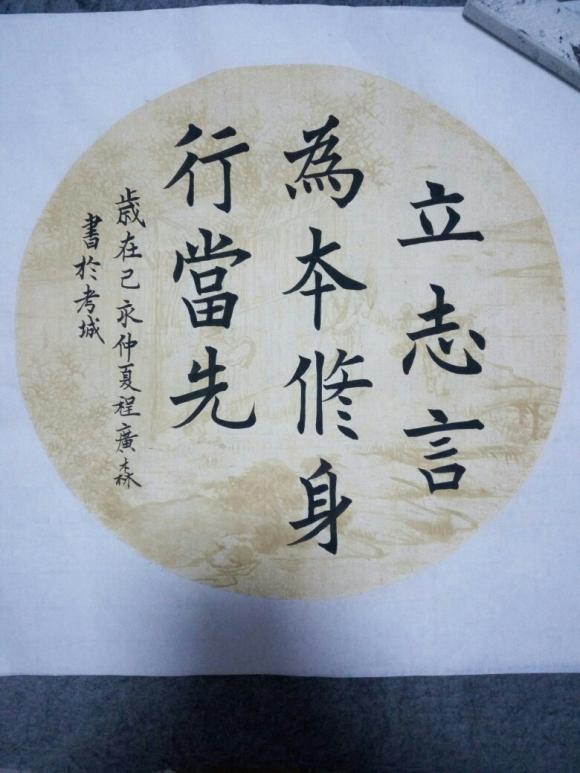 立志言
為本修身
行當先
歲在己亥仲夏程廣森
書於考城